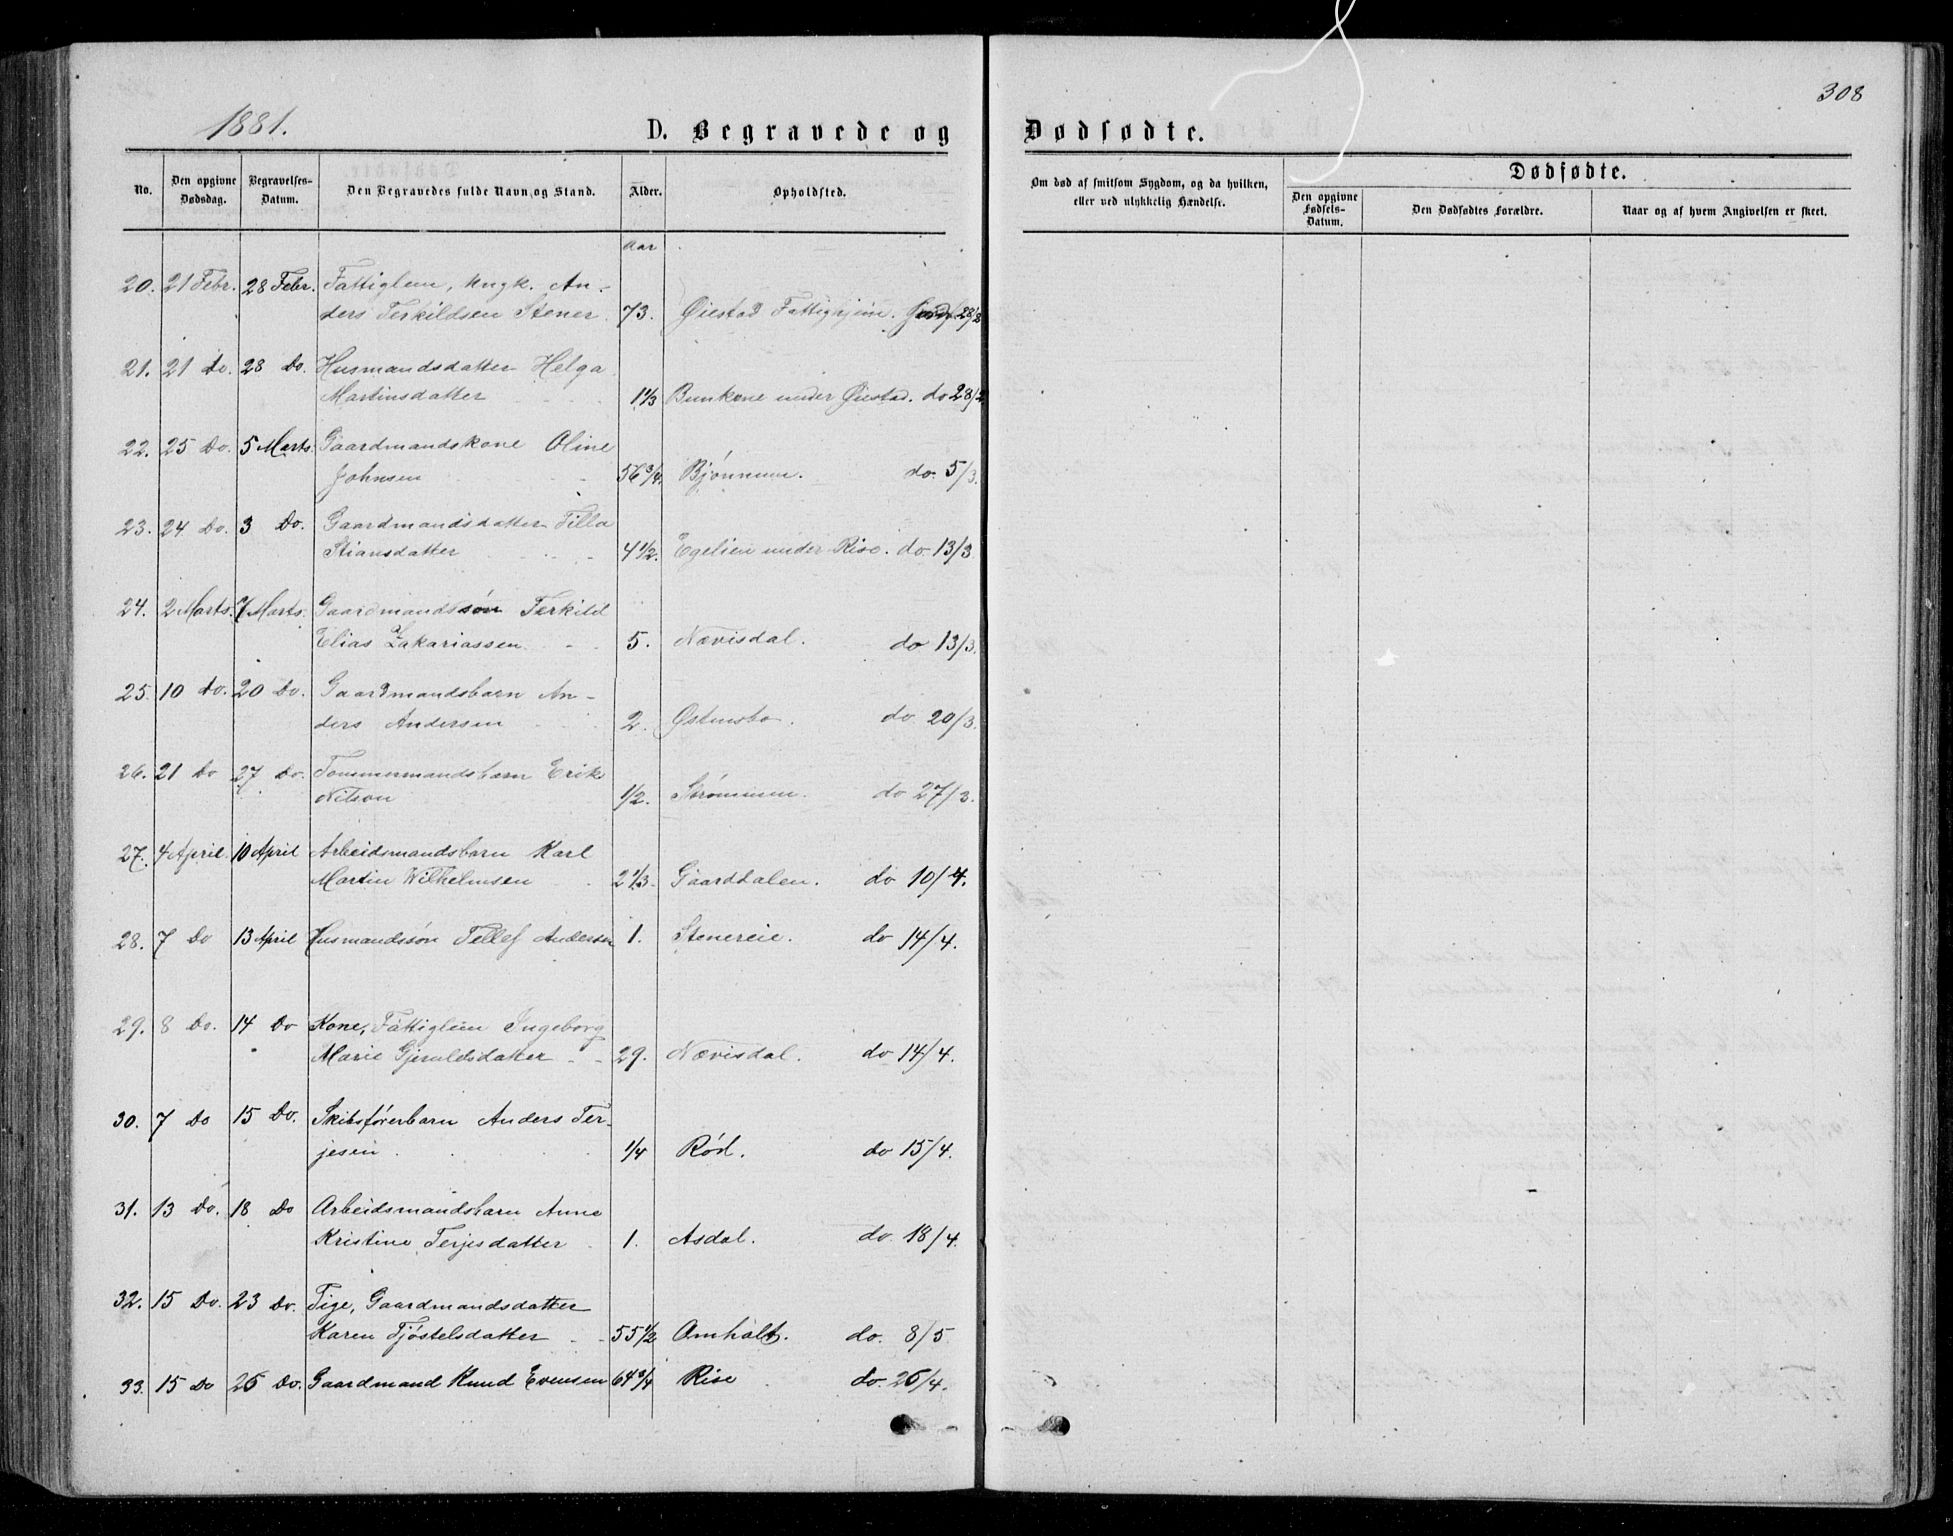 1881.
D. Begravede og Dødfødte.
308
No.
Den opgivne Dødsdag.
Begravelses-Datum.
Den Begravedes fulde Navn og Stand.
Alder.
Opholdsted.
Om død af smitsom Sygdom, og da hvilken, eller ved ulykkelig Hændelse.
Dødfødte.
Den opgivne Fødsels-Datum.
Den Dødfødtes Forældre.
Naar og af hvem Angivelsen er skeet.
Aar
20. 21 Febr. 28 Febr. Fattiglem, Ungk. An-
ders Terkildsen Stener 73. Øiestad Fattighjem. 28/2
21. 21 do. 28 Do. Husmandsdatter Helga
Martinsdatter 1 1/3 Bunkene under Øiestad. do 28/2
22. 25 Do. 5 Marts. Gaardmandskone Oline
Johnsen 56 3/4. Bjönnum. do. 5/3.
23. 24 Do. 3 Do. Gaardmandsdatter Tilla
Stiansdatter 4 1/2. Egelien under Rise. do 13/3
24. 2 Marts. 7 Marts. Gaardmandssön Terkild
Elias Zakariassen 5. Nævisdal. do 13/3.
25. 10 do. 20 Do. Gaardmandsbarn An-
ders Andersen 2. Østensbo. do 20/3.
26. 21 Do 27 Do. Tømmermandsbarn Erik
Nilson 1/2. Strømmen. do 27/3.
27. 4 April. 10 April Arbeidsmandsbarn Karl
Martin Wilhelmsen 2 1/3. Gaarddalen. do 10/4.
28. 7 Do 13 April Husmandssön Tellef Andersen 1. Stenereie. do 14/4.
29. 8 Do. 14 Do Kone, Fattiglem Ingeborg
Marie Gjeruldsdatter 29. Nævisdal. do 14/4.
30. 7 Do 15 Do. Skibsförerbarn Anders Ter-
jesen 1/4 Röd. do 15/4.
31. 13 Do. 18 Do Arbeidsmandsbarn Anne
Kristine Terjesdatter 1. Asdal. do 18/4.
32. 15 Do. 23 Do. Pige, Gaardmandsdatter
Karen Tjöstelsdatter 55 1/2 Omholt. do. 8/5
33. 15 Do 26 Do. Gaardmand Knud Evensen 64 3/4 Rise do. 26/4.